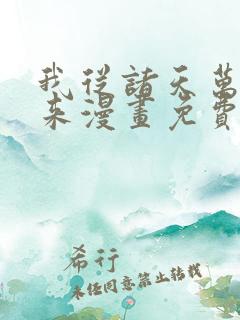 我從諸天萬
來漫畫免費
希行
未经同意禁止转载